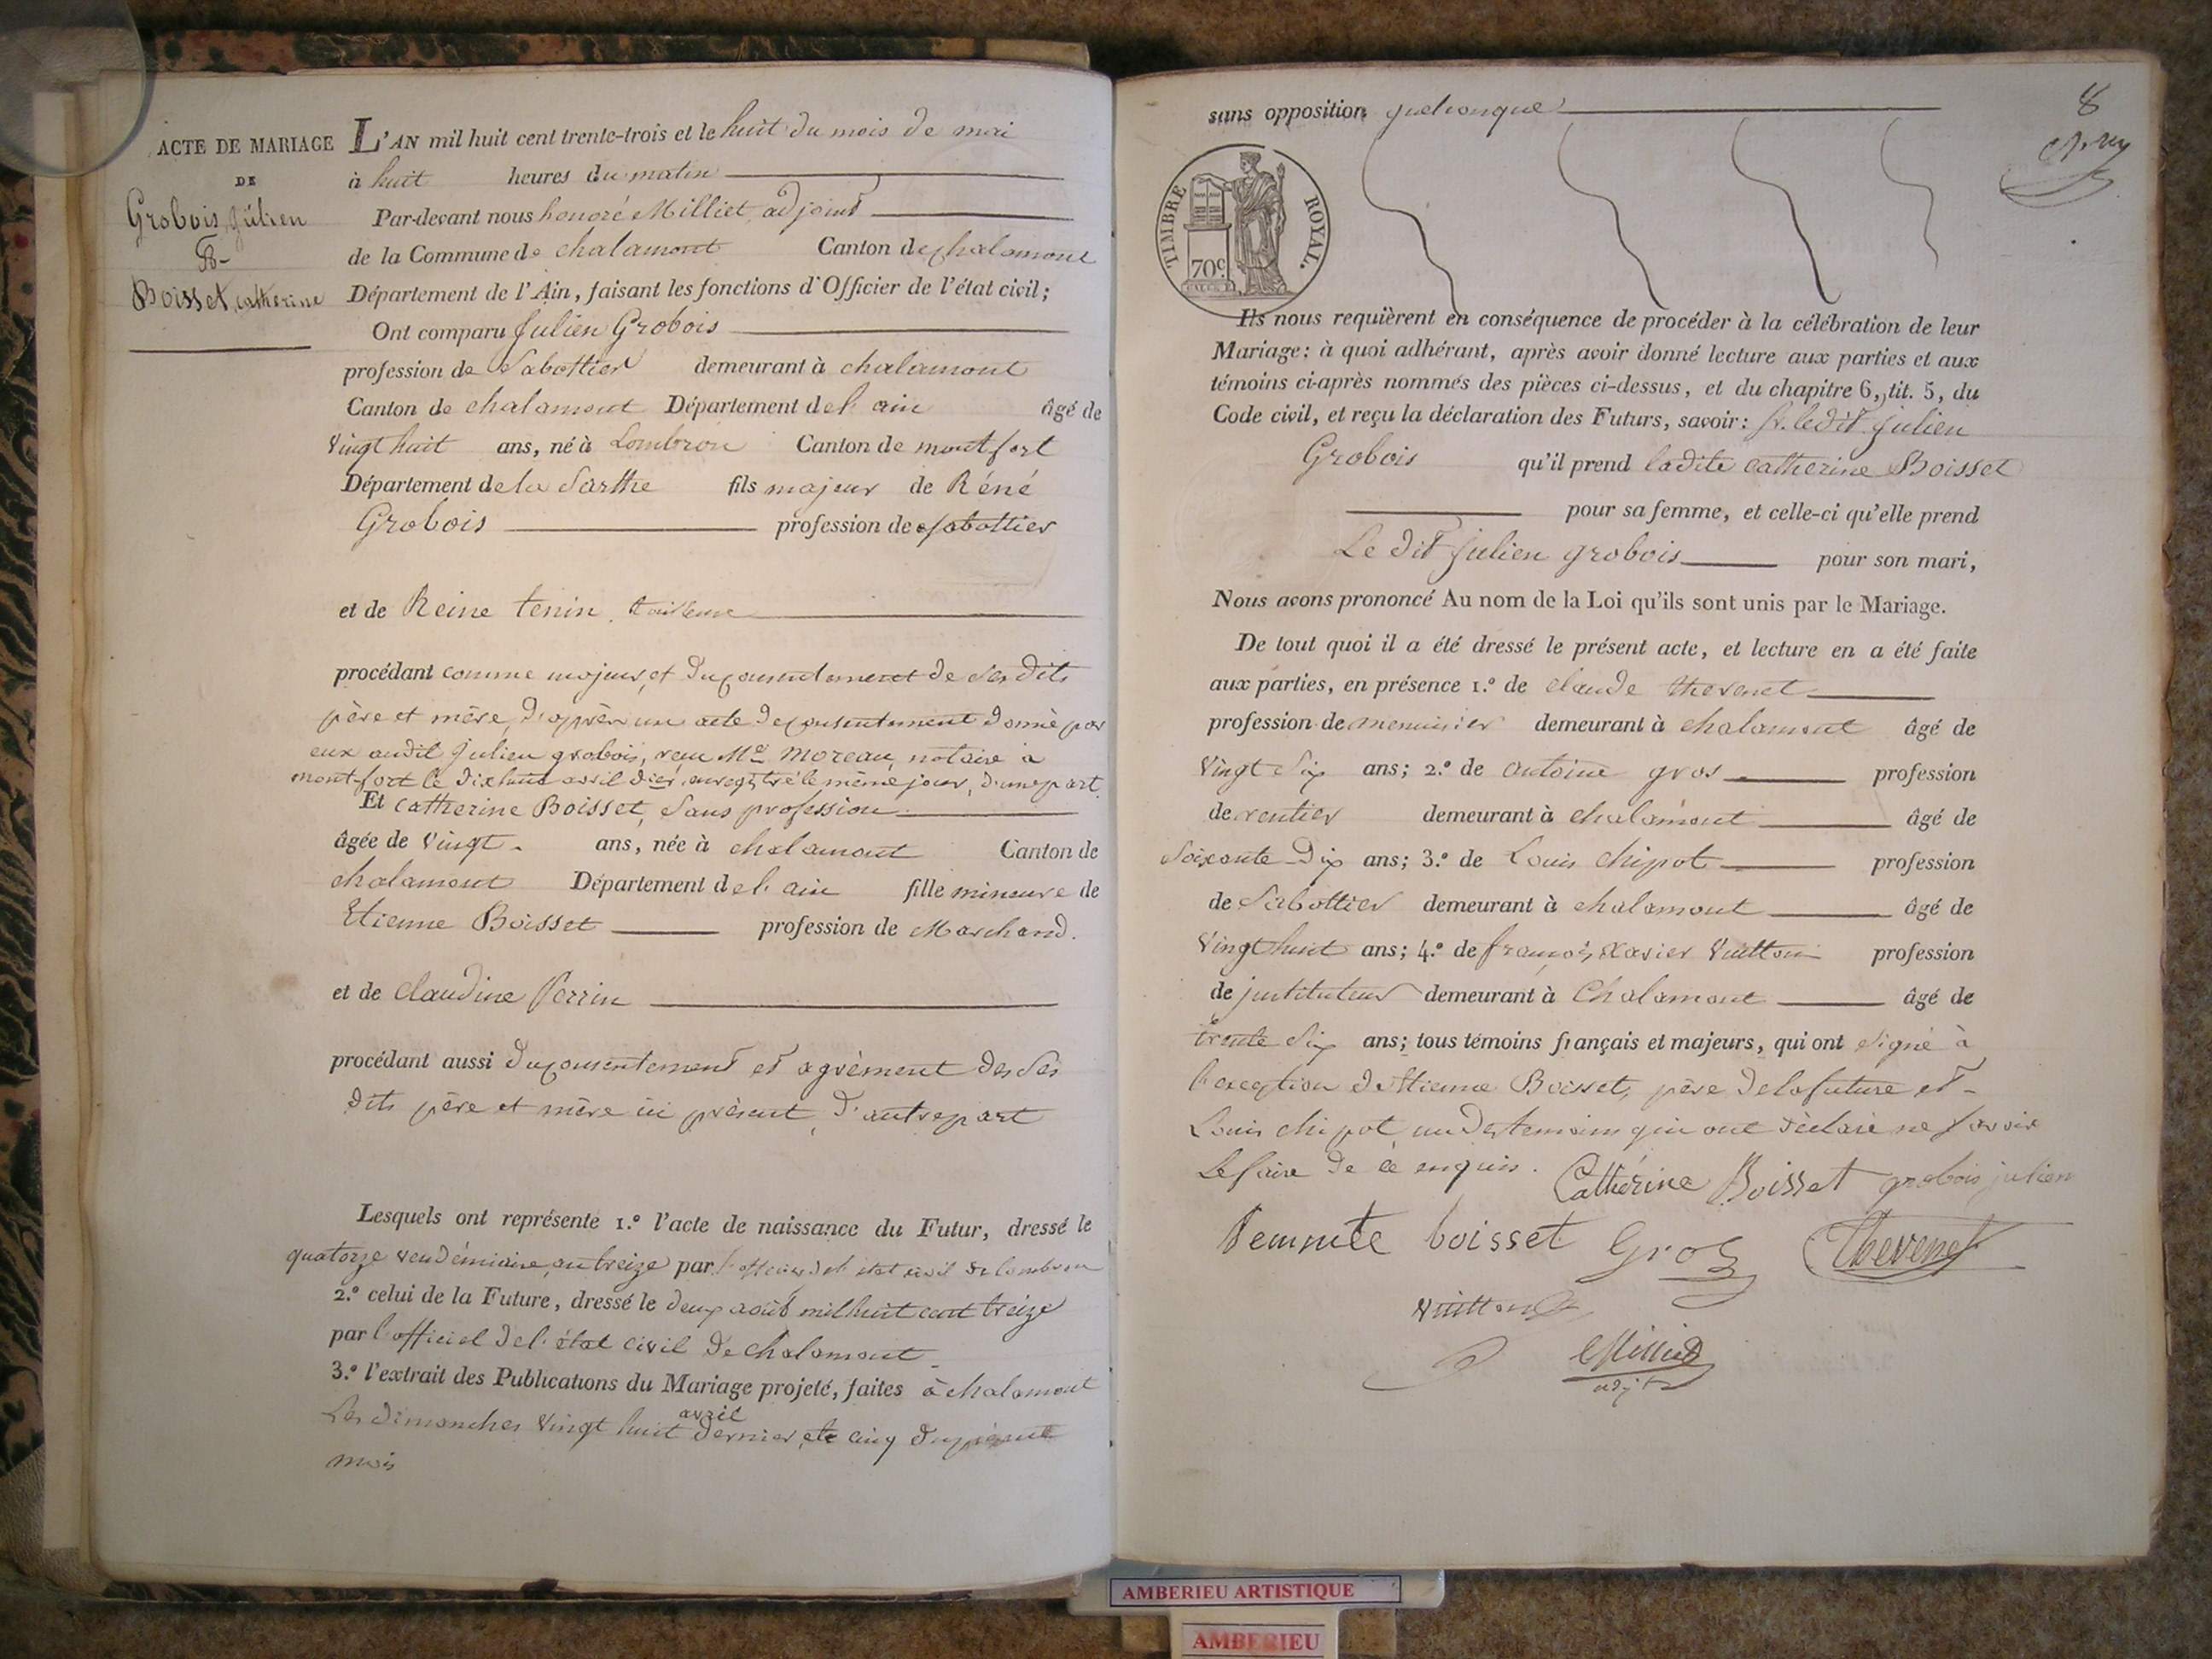 ACTE DE MARIAGE
DE
Grobois, Julien
&
Boisset, catherine
L'AN mil huit cent trente-trois et le huit du mois de mai
à huit heures du matin
Par-devant nous honoré Milliet, adjoint
de la Commune de chalamont Canton de chalamont
Département de l'Ain, faisant les fonctions d'Officier de l'état civil;
Ont comparu Julien Grobois
profession de Sabottier demeurant à chalamont
Canton de chalamont Département de l'ain âgé de
Vingt huit ans, né à Lombron Canton de montfort
Département de la Sarthe fils majeur de Réné
Grobois profession de sabottier
et de Reine tenin,
procédant comme majeur, et du consentement de ses dits
père et mère, d'après un acte de consentement donné par
eux audit Julien grobois, reçu Me Moreau, notaire à
montfort le dixhuit avril dier, enregistré le même jour, d'une part.
Et catherine Boisset, Sans profession
âgée de Vingt ans, née à chalamont Canton de
chalamont Département de l'ain fille mineure de
Etienne Boisset profession de Marchand.
et de Claudine Perrin
procédant aussi du consentement et agrément des Ses
dits père et mère ici présent, d'autre part
Lesquels ont représente 1.º l'acte de naissance du Futur, dressé le
quatorze vendémiaire, an treize par l'officier de l'état civil de Lombron
2.º celui de la Future, dressé le deux août mil huit cent treize
par l'officiel de l'état civil de chalamont
3.º l'extrait des Publications du Mariage projeté, faites à chalamont
avril
Les dimanches Vingt huit dernier, et cinq du présent
mois
8
sans opposition quelconque
TIMBRE ROYAL.
70c
Ils nous requièrent en conséquence de procéder à la célébration de leur
Mariage: à quoi adhérant, après avoir donné lecture aux parties et aux
témoins ci-après nommés des pièces ci-dessus, et du chapitre 6, tit. 5, du
Code civil, et reçu la déclaration des Futurs, savoir: ledit Julien
Grobois qu'il prend ladite catherine Boisset
pour sa femme, et celle-ci qu'elle prend
Le dit Julien grobois pour son mari,
Nous avons prononcé Au nom de la Loi qu'ils sont unis par le Mariage.
De tout quoi il a été dressé le présent acte, et lecture en a été faite
aux parties, en présence 1.º de claude thevenet
profession de menuisier demeurant à chalamont âgé de
Vingt Six ans; 2.º de antoine gros profession
de rentier demeurant à chalamont âgé de
Soixante Dix ans; 3.º de Louis chipot profession
de Sabottier demeurant à chalamont âgé de
Vingt huit ans; 4.º de françois Xavier Vuitton profession
de instituteur demeurant à Chalamont âgé de
trente Six ans; tous témoins français et majeurs, qui ont signé à
l'exception d'Etienne Boisset, père de la future et
Louis chipot, un des temoins qui ont déclaré ne savoir
Le faire de ce enquis. Cathérine Boisset grobois julien
boisset Gros Thevenet
Vuitton
Milliet
adjt
AMBERIEU ARTISTIQUE
AMBERIEU